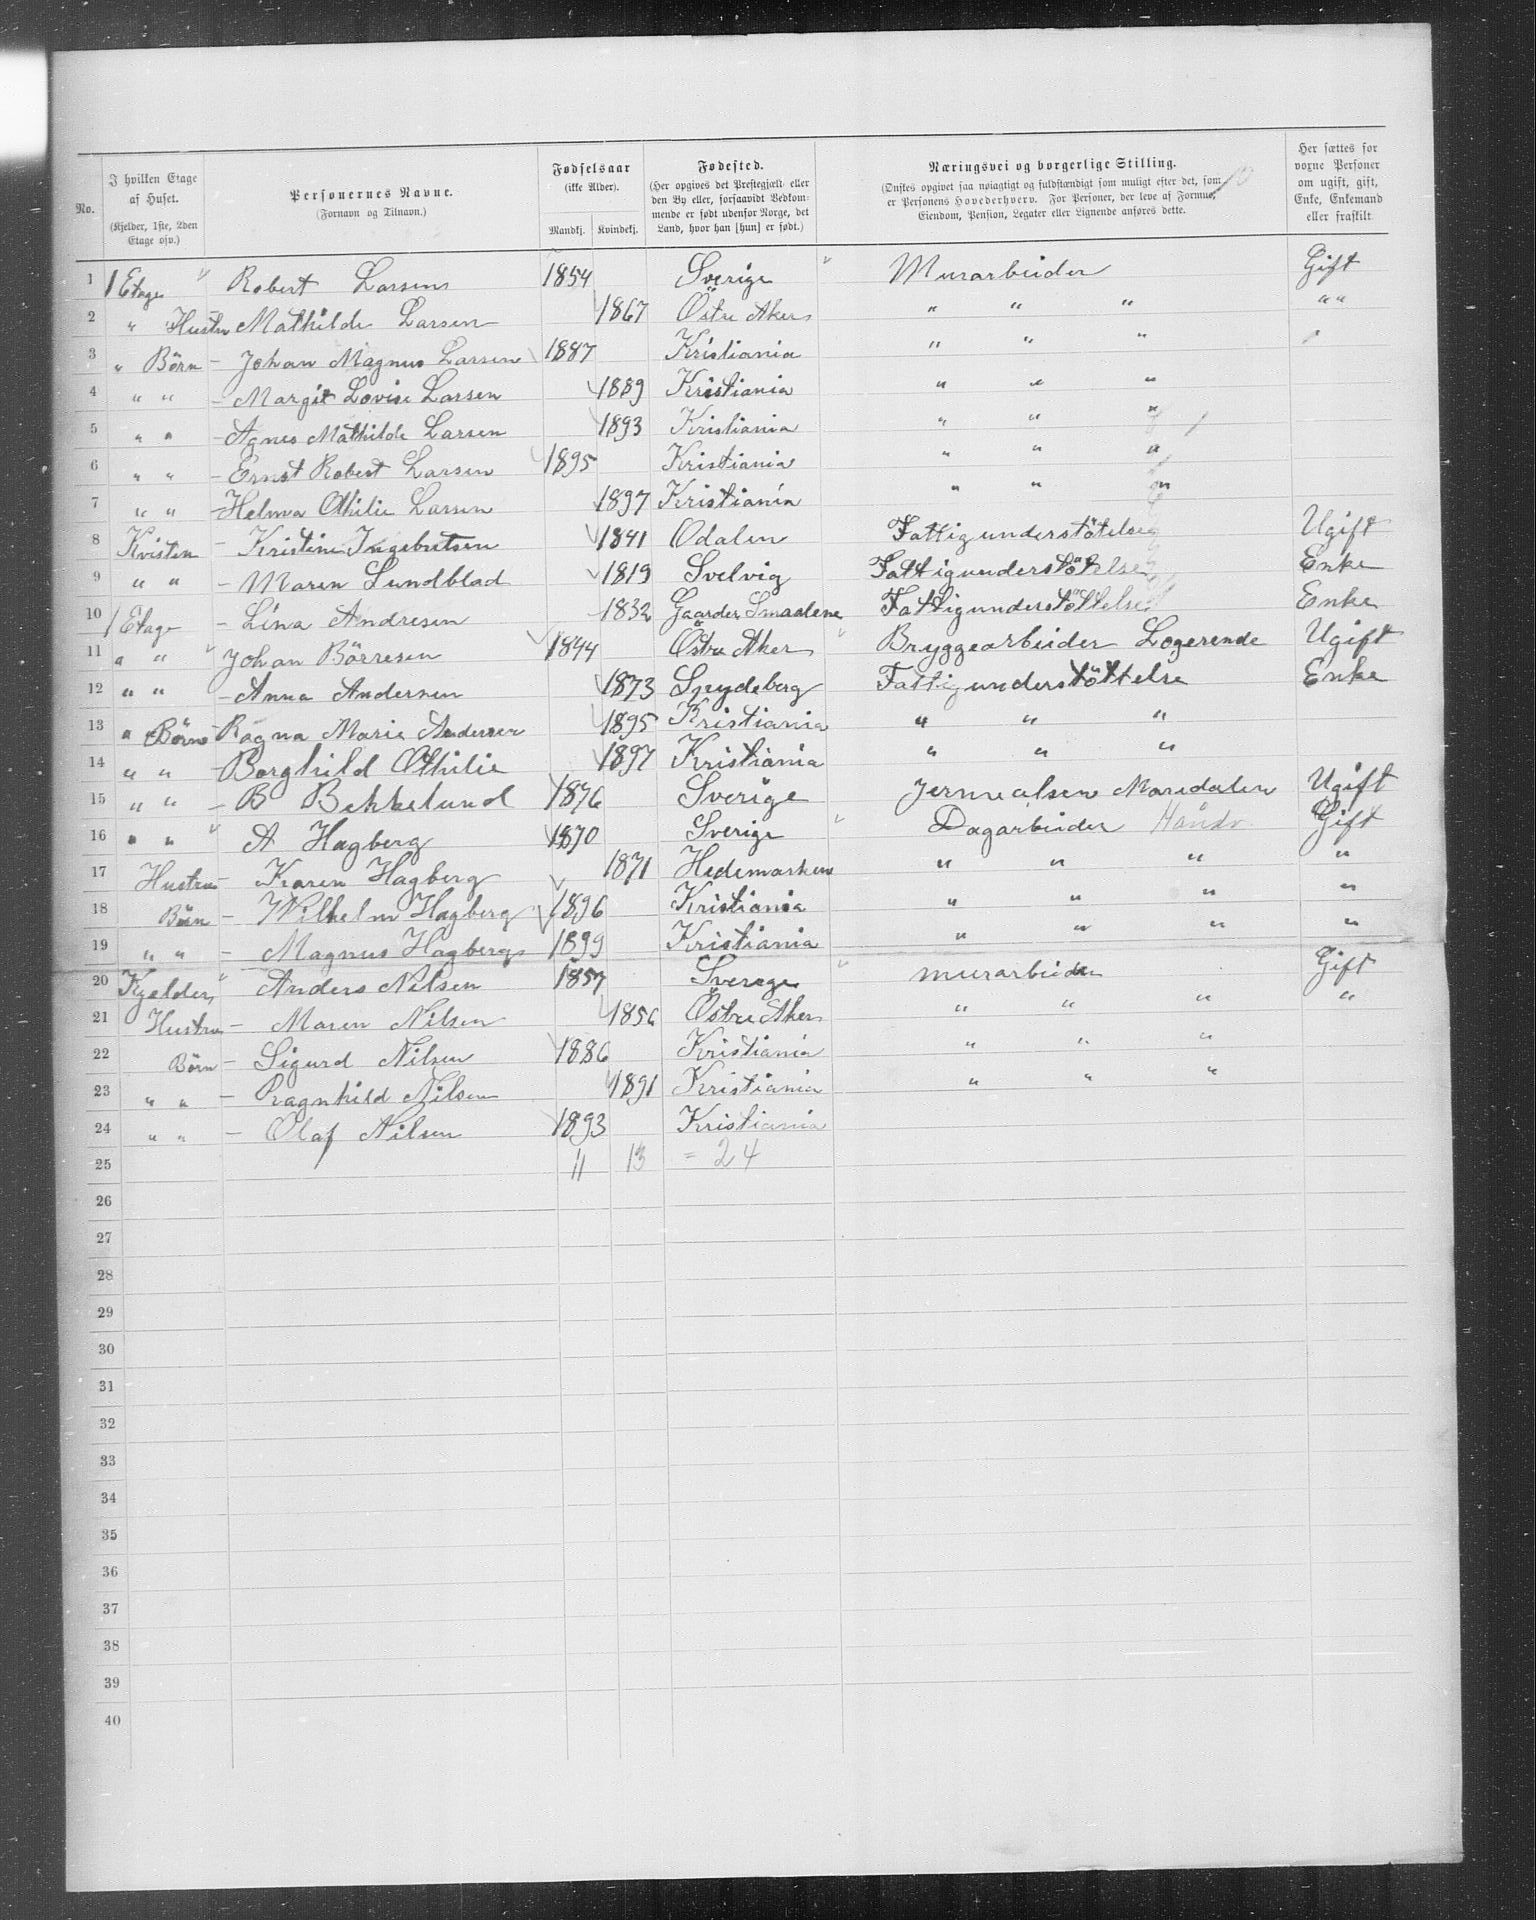 No. | I hvilken Etage af Huset. (Kjelder, 1ste, 2den Etage osv.) | Personernes Navne. (Fornavn og Tilnavn.) | Fødselsaar (ikke Alder). Mandkj. Kvindekj. | Fødested. (Her opgives det Prestegjæld eller den By eller, forsaavidt Vedkommende er født udenfor Norge, det Land, hvor han [hun] er født.) | Næringsvei og borgerlige Stilling. (Ønskes opgivet saa nøiagtigt og fuldstændigt som muligt efter det, som er Personens Hovederhverv. For Personer, der leve af Formue, Eiendom, Pension, Legater eller Lignende anføres dette. | Her sættes for voxne Personer om ugift, gift, Enke, Enkemand eller fraskilt
1 1 Etage " Robert Larsen 1854 Sverige " Murarbeider Gift
2 " Hustru Mathilde Larsen 1867 Östre Aker " " " " "
3 " Börn - Johan Magnus Larsen 1887 Kristiania " " " "
4 " " - Margit Lovise Larsen 1889 Kristiania " " "
5 " " - Agnes Mathilde Larsen 1893 Kristiania " " "
6 " " - Ernst Robert Larsen 1895 Kristiania " " "
7 " " - Helma Othilie Larsen 1897 Kristiania " " "
8 Kvisten - Kristine Ingebretsen 1841 Odalen Fattigunderstötelse Ugift
9 " " - Maren Lundblad 1819 Svelvig Fattigunderstötelse Enke
10 1 Etage - Lina Andresen 1832 Gaarder Smaalene Fattigunderstöttelse Enke
11 " " " Johan Börresen 1844 Östre Aker " Bryggearbeider Logerende Ugift
12 " " - Anna Andersen 1873 Speydeberg Fattigunderstöttelse Enke
13 " Börn - Ragna Marie Andersen 1895 Kristiania " " "
14 " " - Borghild Othilie 1897 Kristiania " " "
15 " " - B Bekkelund 1876 Sverige Maridalen Ugift
16 " " " A Hagberg 1870 Sverige " Dagarbeider Håndv. Gift
17 Hustru - Karen Hagberg 1871 Hedemarken " " " "
18 Börn - Wilhelm Hagberg 1896 Kristiania " " " "
19 " " - Magnus Hagberg 1899 Kristiania " " " "
20 Kjelder " Anders Nilsen 1857 Sverige " Murarbeider Gift
21 Hustru - Maren Nilsen 1856 Östre Aker " " " "
22 Börn - Sigurd Nilsen 1886 Kristiania " " "
23 " " - Ragnhild Nilsen 1891 Kristiania " " "
24 " " - Olaf Nilsen 1893 Kristiania
25 11 13 = 24
26
27
28
29
30
31
32
33
34
35
36
37
38
39
40